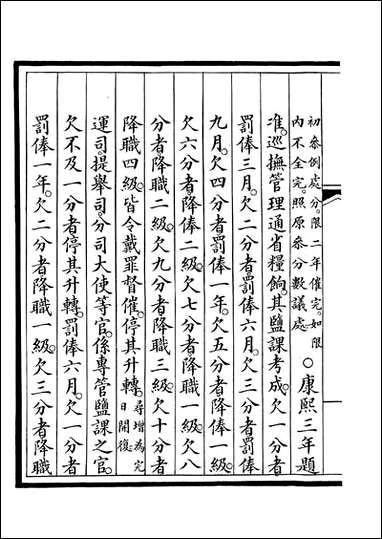 初參例處分。限二年催完。如限
內不全完。照原參分數議處
○康熙三年題
准。巡撫管理通省糧餉。其鹽課考成。欠一分者
罰俸三月。欠二分者罰俸六月。欠三分者罰俸
九月。欠四分者罰俸一年。欠五分者降俸一級。
欠六分者降俸二級。欠七分者降職一級。欠八
分者降職二級。欠九分者降職三級。欠十分者
降職四級。皆令戴罪督催。停其升轉。
尋增為完
日開復。
運司。提舉司。分司大使等官。係專管鹽課之官。
欠不及一分者停其升轉。罰俸六月。欠一分者
罰俸一年。欠二分者降職一級。欠三分者降職